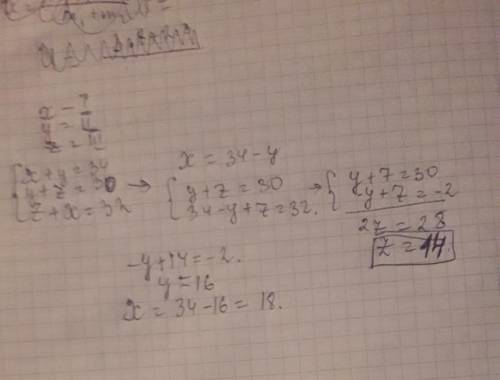 x - I
y = II
z = III
{ x + y = 34
y + z = 30
z + x = 32
→
x = 34 - y
{ y + z = 30
34 - y + z = 32.
→
{ y + z = 30
-y + z = -2
2z = 28
z = 14.
-y + 14 = -2.
y = 16
x = 34 - 16 = 18.